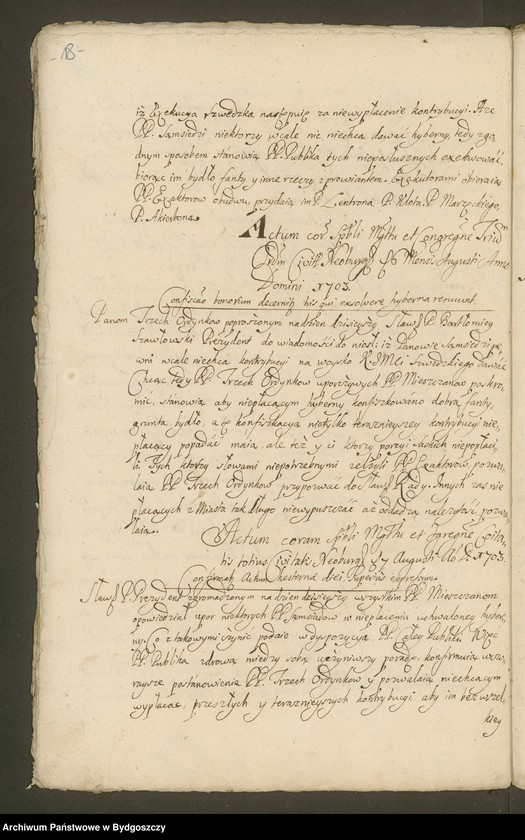 -18-
iż Exekucya szwedzka nastąpuię za niewypłacenie kontrybucyi. A że
PP. Sąmsiedzi niektorzy wcale nie niechcą dawać hyberny, tedy zgo-
dnym sposobem stanowią PP. Publika tych nieposłusznych exekwować,
biorąc im bydło fanty, y inne rzeczy z prowiantem. Exekutorami obieraią
PP. Exaktorow obudwu, przydaią im P. Lentrona P. Wota. P. Marzyckiego,
P. Akierbona.
Actum corā Spbli Mgttu et Congregne Triū
Ordm Civitt Neoburg Mensis Augusti Anno
Domini 1703.
Confiscao bonorum decernit his qui exsolvere hyberna renuunt.
Panom Trzech Ordynkow poproszonym na dzien dzisieyszy Sław P. Bartłomiey
Szawłowski Prezydent do wiadomości do niosł: iż Panowie Sąmsiedzi pe-
wni wcale niechcą kontrybucyi na woysko K. J. Mci Szwedzkiego dawać
Chcąc tedy PP. Trzech Ordynkow uporczywych PP. Mieszczanow poskro-
mić, stanowią aby niepłacącym hyberny konfiszkowano dobra, fanty,
grunta bydło, a tę konfiszkacyą nietylko teraznieyszey kontrybucyi nie
płacący popadać maią, ale też y ci ktorzy przyszłych niepopłaci-
li. Tych ktorzy słowami niepotrzebnymi zelżyli PP. Exaktorow pozwa-
laią PP. Trzech Ordynkow przypozwać do Sław Rady. Innych zas nie
płacących z Miasta tak długo niewypuszczać aż oddadzą należytość pozwa-
laią.
Actum coram Spbli Mgttu et Cgregne Civita-
his totius Civitatis Neoburg 7 Augusti Ao D. 1703.
Confirmatq Actum hesternæ diei superius expressum.
Sław P. Prezydent zgromadzonym na dzien dzisieyszy wszystkim PP. Mieszczanom
opowiedział upor niektorych PP. Sąmsiadow w niepłaceniu uchwaloney hyber-
ny. Co z takowymi czynic podaie w dyspozycyą PP. całey Publiki. Więc
PP. Publika zdrową między sobą uczyniwszy poradę, konfirmuią wczo-
raysze postanowienie PP. Trzech Ordynkow y pozwalaią niechcącym
wypłacac przeszłych y teraznieyszych kontrybucyi, aby im bez wszel-
kiey
Archiwum Państwowe w Bydgoszczy